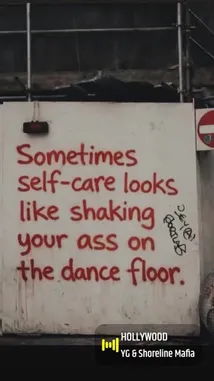 Sometimes
self-care looks
like shaking
your ass on
the dance floor.
HOLLYWOOD
YG & Shoreline Mafia